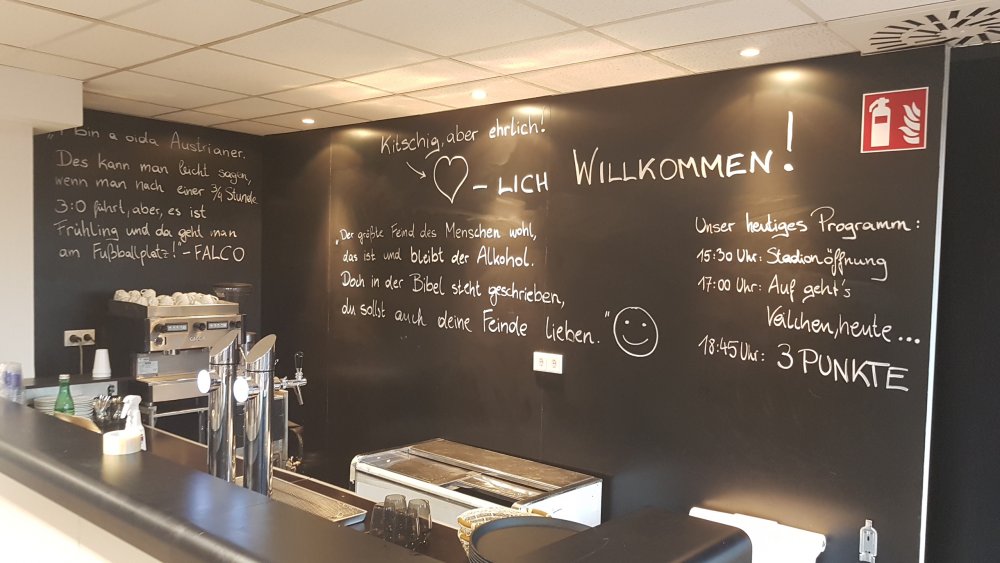 "I bin a oida Austrianer.
Des kann man leicht sagen,
wenn man nach einer 3/4 Stunde
3:0 führt, aber, es ist
Frühling und da geht man
am Fußballplatz!" - FALCO
Kitschig, aber ehrlich!
- LICH WILLKOMMEN!
"Der größte Feind des Menschen wohl,
das ist und bleibt der Alkohol.
Doch in der Bibel steht geschrieben,
du sollst auch deine Feinde lieben."
Unser heutiges Programm:
15:30 Uhr: Stadionöffnung
17:00 Uhr: Auf geht's
Veilchen, heute...
18:45 Uhr: 3 PUNKTE